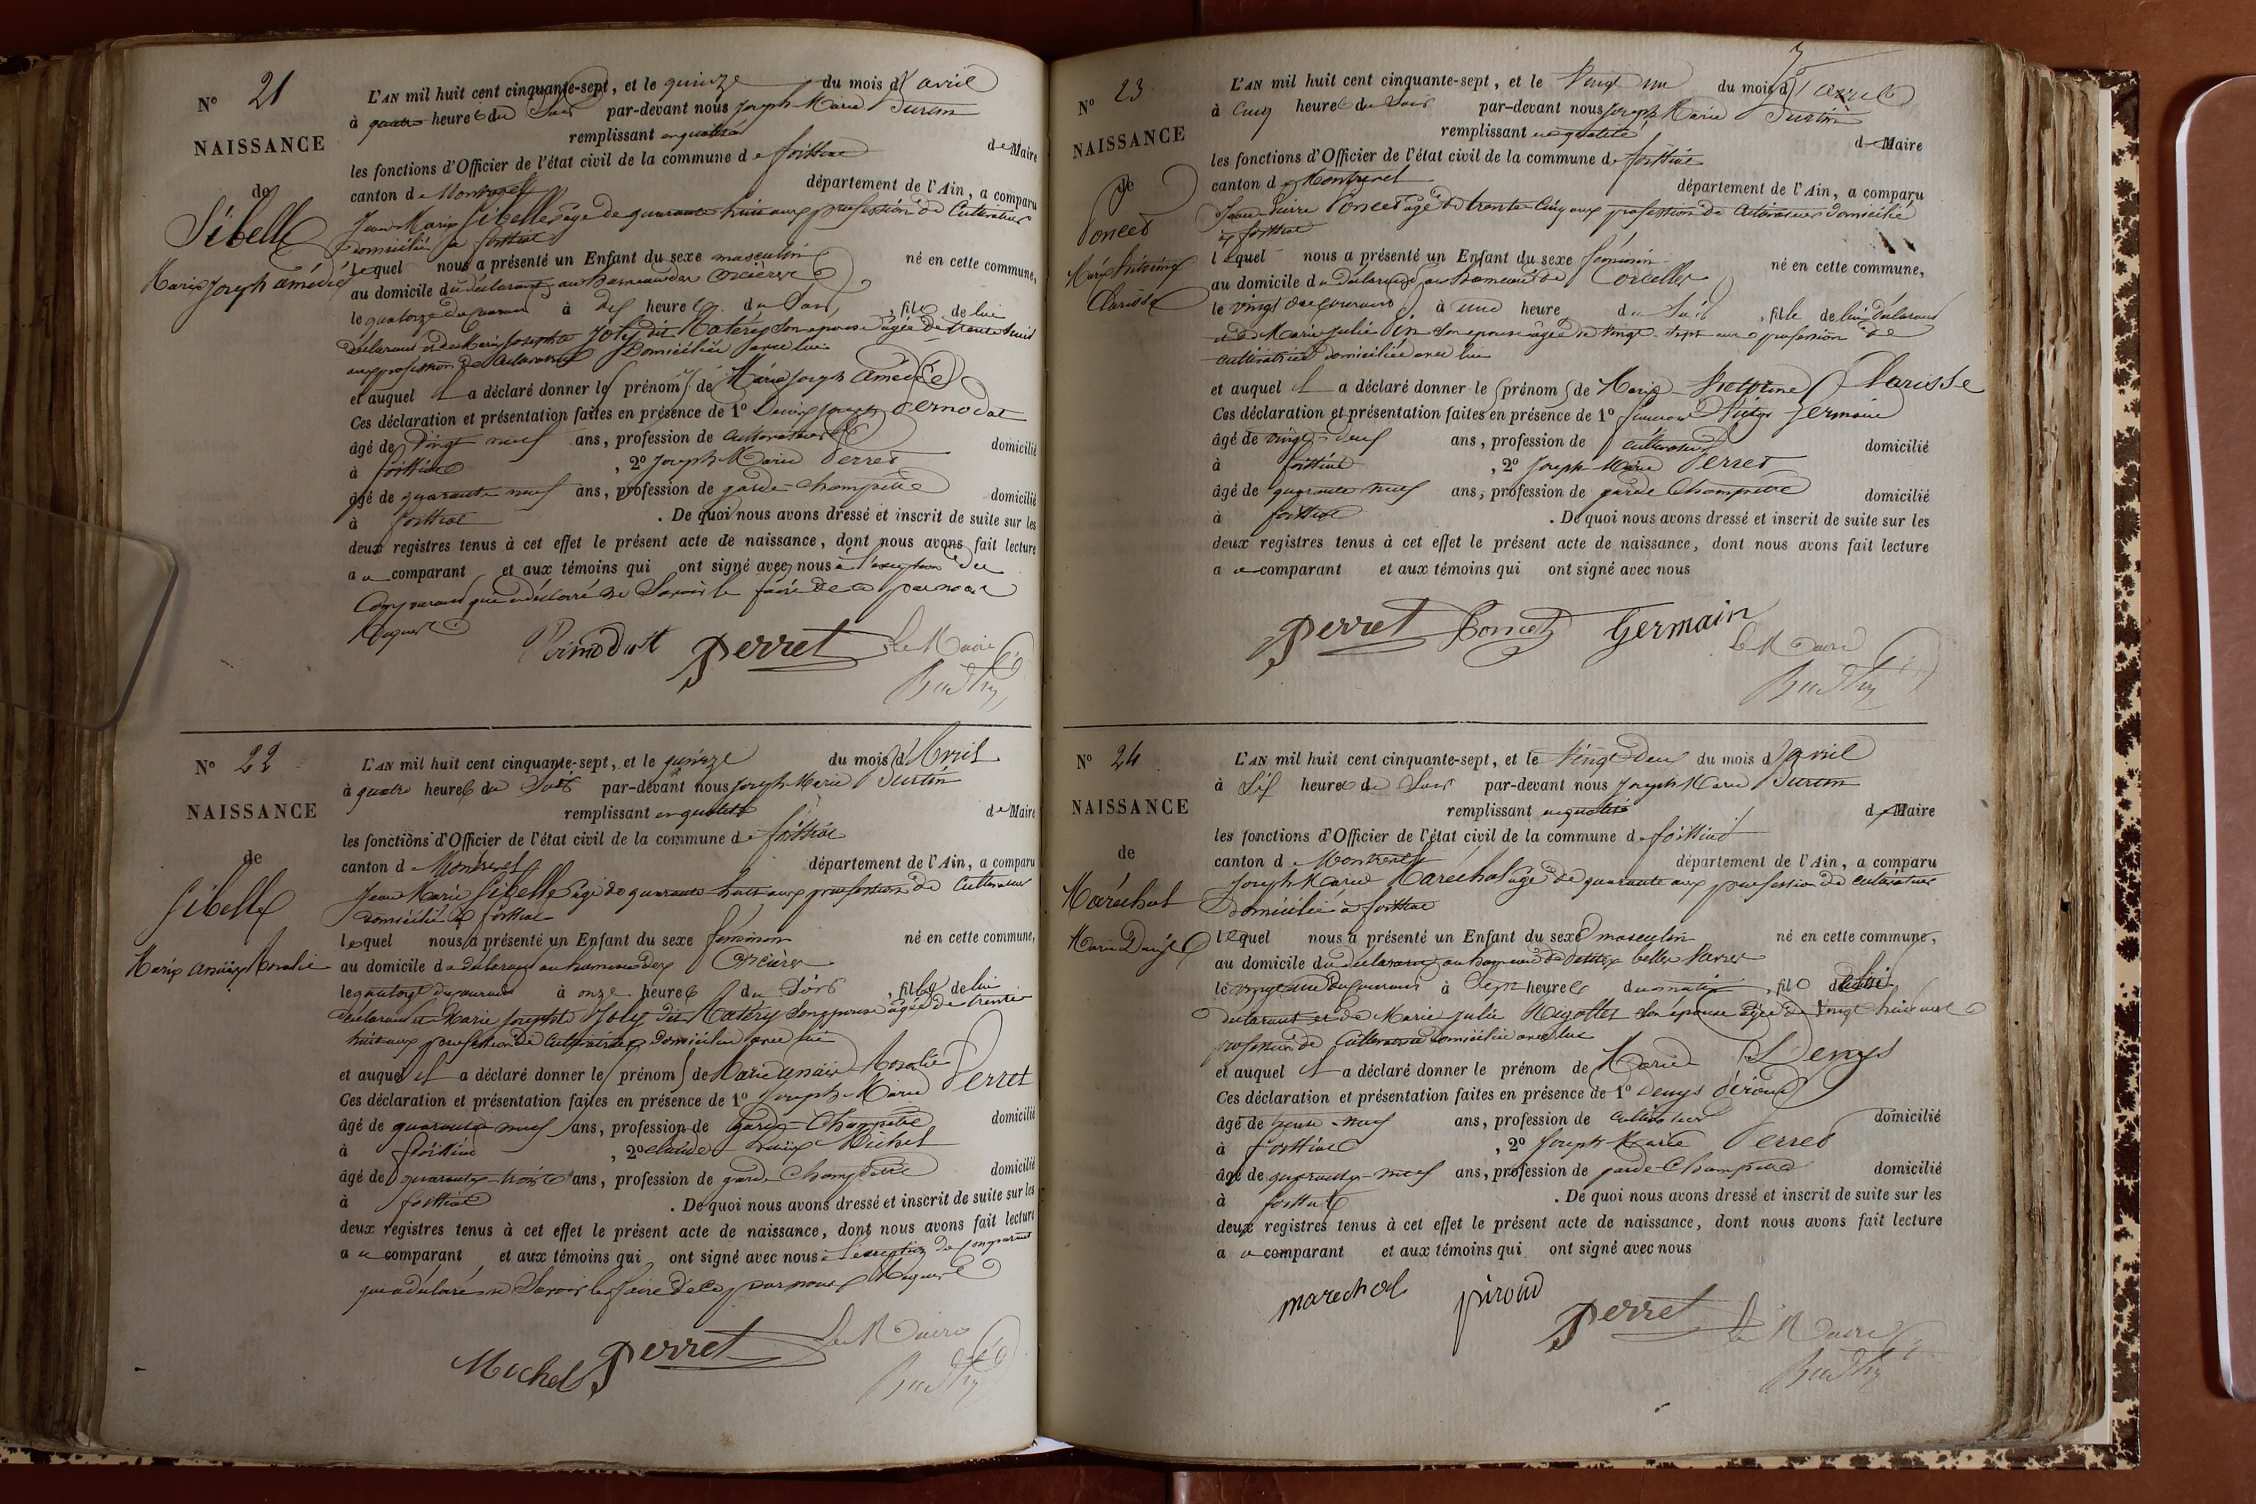 N° 21
NAISSANCE
de
Sibelle
Marie Joseph Amédé
L'AN mil huit cent cinquante-sept, et le quinze du mois d'avril
à quatre heures du Soir par-devant nous Joseph Marie
remplissant en qualité de Maire
les fonctions d'Officier de l'état civil de la commune de foissiat
canton de Montrevel département de l'Ain, a comparu
Jean Marie Sibelle âgé de quarante huit ans profession de Cultivateur
domicilié à foissiat
lequel nous a présenté un Enfant du sexe masculin né en cette commune,
au domicile du déclarant au hameau des
le quatorze du courant à dix heures du Soir, fils de lui
déclarant et de Marie Josephte Joly dit son épouse âgée de trente huit
ans profession de cultivatrice Domiciliée avec lui
et auquel il a déclaré donner les prénoms de Marie Joseph Amédée
Ces déclaration et présentation faites en présence de 1° Denis Joseph Pernodat
âgé de vingt neuf ans, profession de cultivateur domicilié
à foissiat, 2° Joseph Marie Perret
âgé de quarante neuf ans, profession de garde-champêtre domicilié
à foissiat. De quoi nous avons dressé et inscrit de suite sur les
deux registres tenus à cet effet le présent acte de naissance, dont nous avons fait lecture
au comparant et aux témoins qui ont signé avec nous à l'exception du
Comparant qui a déclaré ne Savoir le faire de ce par nous
Requis
perret Le Maire
N° 22
NAISSANCE
de
Sibelle
Marie Rosalie
L'AN mil huit cent cinquante-sept, et le quinze du mois d'Avril
à quatre heures du Soir par-devant nous Joseph Marie
remplissant en qualité de Maire
les fonctions d'Officier de l'état civil de la commune de foissiat
canton de Montrevel département de l'Ain, a comparu
Jean Marie Sibelle âgé de quarante huit ans profession de Cultivateur
domicilié à foissiat
lequel nous a présenté un Enfant du sexe féminin né en cette commune,
au domicile du déclarant au hameau des
le quatorze du courant à onze heures du Soir, fille de lui
déclarant et Marie Josephte Joly dit son épouse âgée de trente
huit ans profession de cultivatrice Domiciliée avec lui
et auquel il a déclaré donner les prénoms de Marie Rosalie
Ces déclaration et présentation faites en présence de 1° Joseph Marie Perret
âgé de quarante neuf ans, profession de garde-Champêtre domicilié
à foissiat, 2° Claude Michel
âgé de quarante trois ans, profession de garde Champêtre domicilié
à foissiat. De quoi nous avons dressé et inscrit de suite sur les
deux registres tenus à cet effet le présent acte de naissance, dont nous avons fait lecture
au comparant et aux témoins qui ont signé avec nous à l'exception du comparant
qui a déclaré ne Savoir le faire de ce par nous Requis
Michel perret Le Maire
N° 23
NAISSANCE
de
Poncet
Marie Clarisse
L'AN mil huit cent cinquante-sept, et le Vingt un du mois d'avril
à Cinq heures du Soir par-devant nous Joseph Marie
remplissant en qualité de Maire
les fonctions d'Officier de l'état civil de la commune de foissiat
canton de Montrevel département de l'Ain, a comparu
Pierre Poncet âgé de trente-Cinq ans profession de Cultivateur domicilié
à foissiat
lequel nous a présenté un Enfant du sexe féminin né en cette commune,
au domicile du déclarant au hameau de
le vingt du courant à une heure du Soir, fille de lui déclarant
et de Marie Julie son épouse âgée de vingt-sept ans profession de
cultivatrice domiciliée avec lui
et auquel il a déclaré donner les prénoms de Marie Clarisse
Ces déclaration et présentation faites en présence de 1° Germain
âgé de vingt-neuf ans, profession de cultivateur domicilié
à foissiat, 2° Joseph Marie Perret
âgé de quarante neuf ans, profession de garde Champêtre domicilié
à foissiat. De quoi nous avons dressé et inscrit de suite sur les
deux registres tenus à cet effet le présent acte de naissance, dont nous avons fait lecture
au comparant et aux témoins qui ont signé avec nous
perret Poncet Germain
Le Maire
N° 24
NAISSANCE
de
Maréchal
Marie Denys
L'AN mil huit cent cinquante-sept, et le Vingt-Deux du mois d'avril
à Six heures du Soir par-devant nous Joseph Marie
remplissant en qualité de Maire
les fonctions d'Officier de l'état civil de la commune de foissiat
canton de Montrevel département de l'Ain, a comparu
Joseph Marie Maréchal âgé de quarante ans profession de cultivateur
domicilié à foissiat
lequel nous a présenté un Enfant du sexe masculin né en cette commune,
au domicile du déclarant au hameau de
le vingt deux du courant à Sept heures du matin, fils de lui
déclarant et de Marie Julie son épouse âgée de vingt huit ans
profession de Cultivatrice domiciliée avec lui
et auquel il a déclaré donner les prénom de Marie Denys
Ces déclaration et présentation faites en présence de 1° Denys Piroud
âgé de trente-neuf ans, profession de cultivateur domicilié
à foissiat, 2° Joseph Marie Perret
âgé de quarante-neuf ans, profession de garde-Champêtre domicilié
à foissiat. De quoi nous avons dressé et inscrit de suite sur les
deux registres tenus à cet effet le présent acte de naissance, dont nous avons fait lecture
au comparant et aux témoins qui ont signé avec nous
marechal piroud perret Le Maire